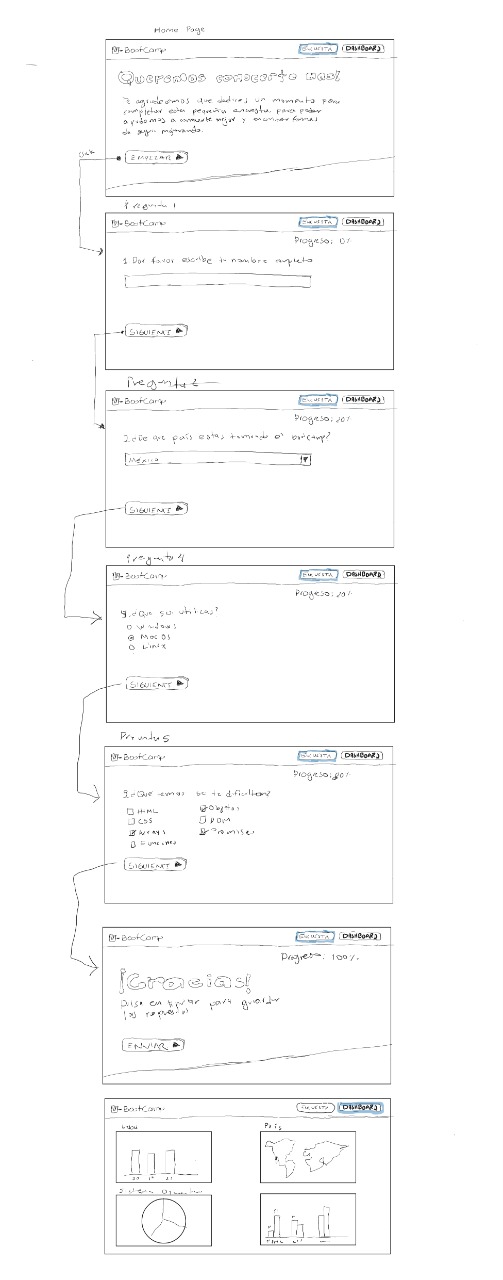 Home Page
BootCamp
ENCUESTA DASHBOARD
Queremos conocerte más!
Te agradecemos que dediques un momento para
completar esta pequeña encuesta para poder
ayudarnos a conocerte mejor y encontrar formas
de seguir mejorando.
click
EMPEZAR
Pregunta 1
BootCamp
ENCUESTA DASHBOARD
Progreso: 0%
1. Por favor escribe tu nombre completo
SIGUIENT
Pregunta 2
BootCamp
ENCUESTA DASHBOARD
Progreso: 20%
2. ¿De que país estas tomando el bootcamp?
México
SIGUIENT
Pregunta 4
BootCamp
ENCUESTA DASHBOARD
Progreso:
¿Que utilizas?
Windows
MacOS
Linux
SIGUIENT
Pregunta 5
BootCamp
ENCUESTA DASHBOARD
Progreso: 80%
¿Que temas se te dificultan?
HTML Objetos
CSS DOM
Arrays Promises
Funciones
SIGUIENT
BootCamp
ENCUESTA DASHBOARD
Progreso: 100%
¡Gracias!
Pulsa en enviar para guardar
las respuestas
ENVIAR
BootCamp
ENCUESTA DASHBOARD
País
HTML